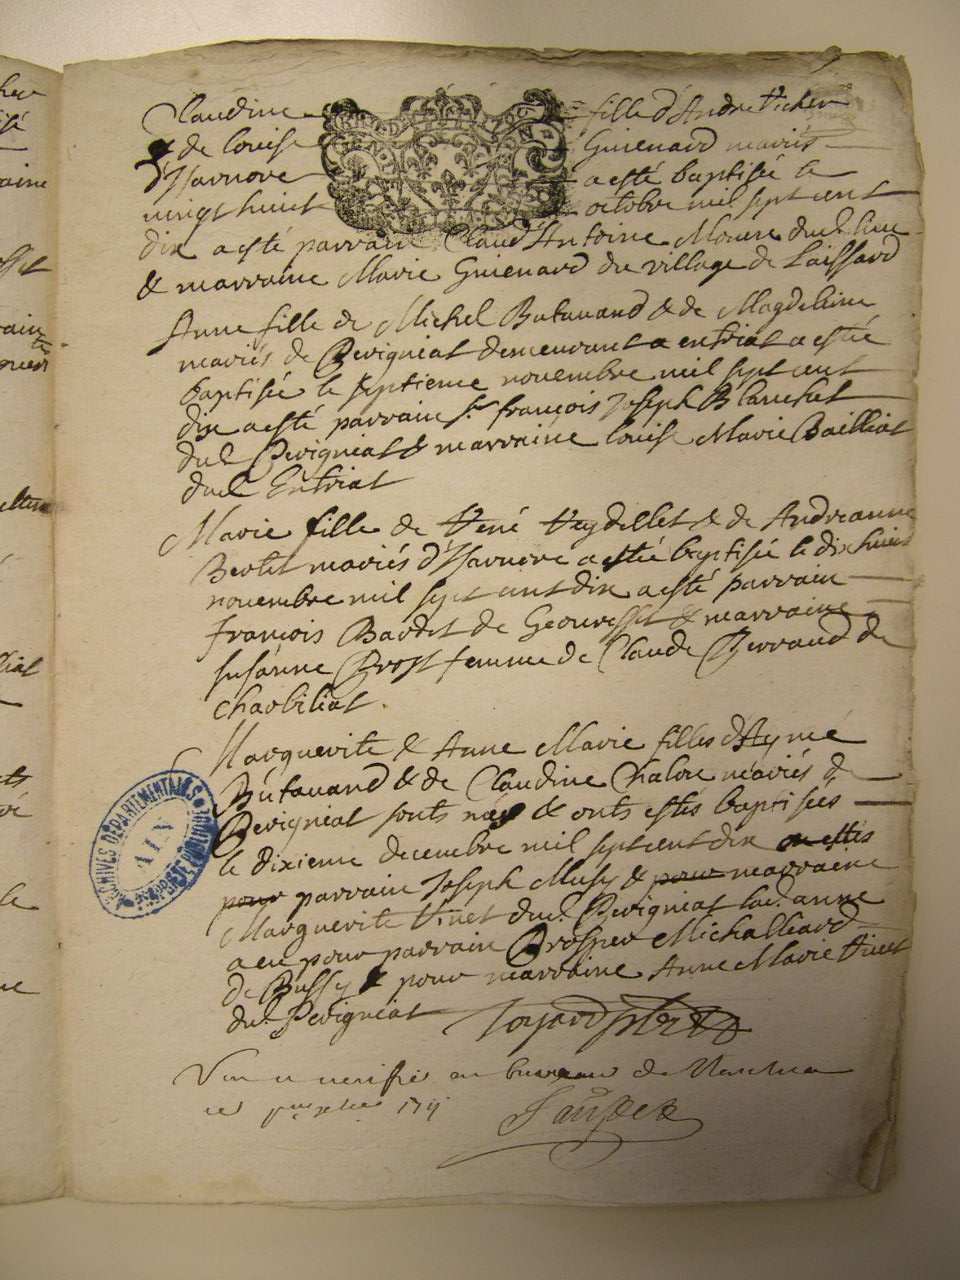 Claudine fille d'André Vicher
& de louise Guienard mariés
d'Isarnore a esté baptisée le
vingt huict octobre mil sept cent
dix a esté parrain Claud' Antoine
& marraine Marie Guienard du village de Laissard
Anne fille de Michel Butavand & de Magdelaine
mariés de Perigniat demeurant a entriat a estée
baptisée le septieme novembre mil sept cent
dix a esté parrain sr françois Joseph Blanchet
dud Perigniat & marraine louise Marie Bailliat
dud Entriat
Marie fille de René & de Andreanne
Bertet mariés d'Isarnore a estée baptisée le dixhuict
novembre mil sept cent dix a esté parrain
françois Bardet de Geovresset & marraine
susanne Brost femme de Claude Perraud de
charbiliat.
Marguerite & Anne Marie filles d'Aymé
Butavand & de Claudine Chalon mariés de
Perigniat sonts & onts estés baptisées
le dixieme decembre mil sept cent dix
pour parrain Joseph Musy & pour marraine
Marguerite Vinet dud. Perigniat lad. anne
a eu pour parrain Prosper Michalliard
de Bussy & pour marraine Anne Marie Vinet
dud. Perigniat
Vu et verifié au bureau de Nantua
1711
ARCHIVES DÉPARTEMENTALES
AIN